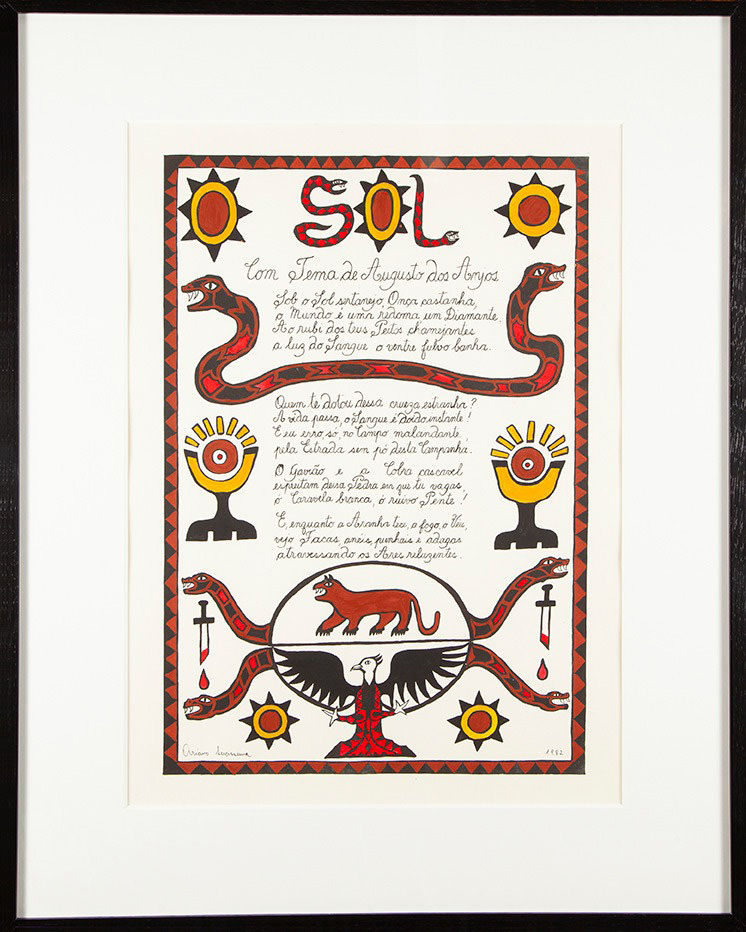 SOL
Com Tema de Augusto dos Anjos
Sob o Sol sertanejo Onça castanha,
o Mundo é uma redoma um Diamante.
Ao rubi dos teus Peitos chamejantes
a luz do Sangue o ventre fulvo banha.
Quem te dotou dessa crueza estranha?
A vida passa, o Sangue é doido instante!
E eu erro, só, no Campo malandante,
pela Estrada sem pó desta Campanha.
O Gavião e a Cobra cascavel
espreitam dessa Pedra em que tu vagas
ó Caravela branca, ó ruivo Pente!
E, enquanto a Aranha tece, a fogo, o Véu,
vejo Facas, anéis, punhais e adagas
atravessando os Ares reluzentes.
Ariano Suassuna
1982